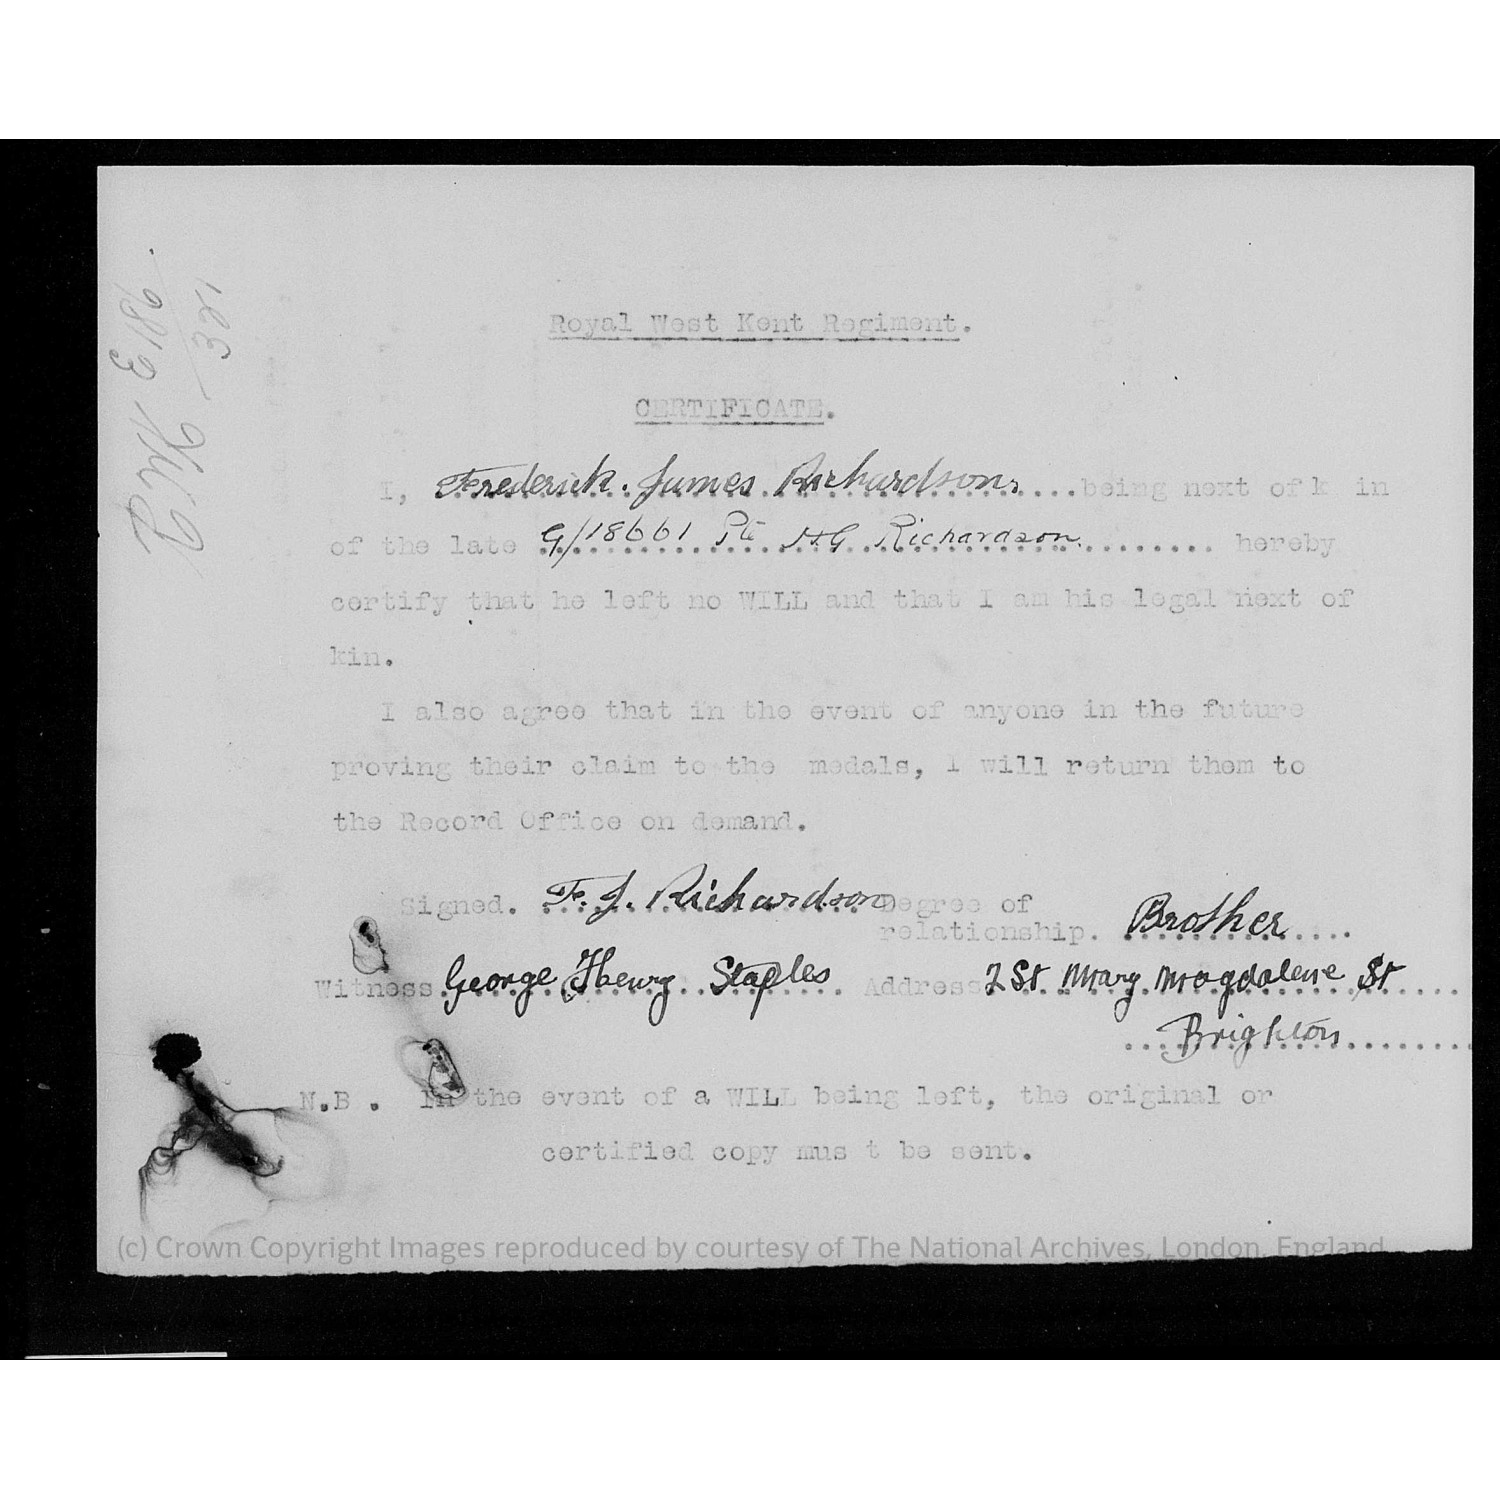 Royal West Kent Regiment.
CERTIFICATE.
I, Frederick. James Richardson, being next of k in
of the late G/18661 Pte H G Richardson. hereby
certify that he left no WILL and that I am his legal next of
kin.
I also agree that in the event of anyone in the future
proving their claim to the medals, I will return them to
the Record Office on demand.
Signed. F. J. Richardson Degree of
relationship. Brother
Witness George Henry Staples Address 2 St Mary Magdalene St
Brighton
N.B. In the event of a WILL being left, the original or
certified copy mus t be sent.
(c) Crown Copyright Images reproduced by courtesy of The National Archives, London, England.
321